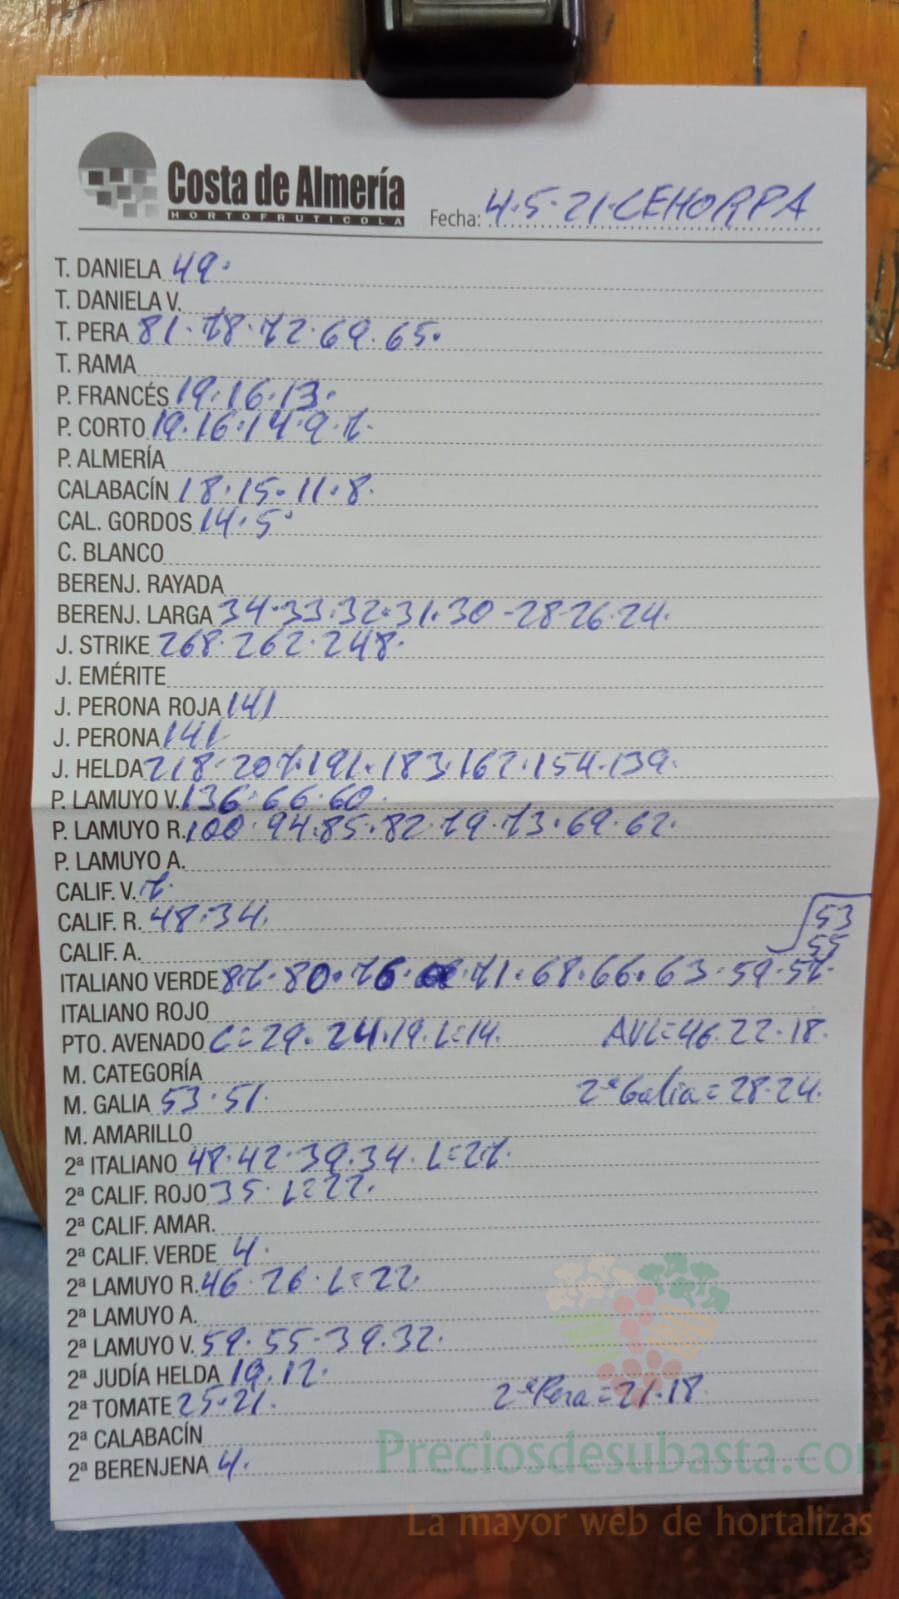 Costa de Almería
HORTOFRUTICOLA
Fecha: 4.5.21.CEHORPA
T. DANIELA 49.
T. DANIELA V.
T. PERA 81.78.72.69.65.
T. RAMA
P. FRANCÉS 19.16.13.
P. CORTO 19.16.14.9.7.
P. ALMERÍA
CALABACÍN 18.15.11.8.
CAL. GORDOS 14.5.
C. BLANCO
BERENJ. RAYADA
BERENJ. LARGA 34.33.32.31.30-28-26.24.
J. STRIKE 268.262.248.
J. EMÉRITE
J. PERONA ROJA 141
J. PERONA 141
J. HELDA 218.207.191.183.162.154.139.
P. LAMUYO V. 136.66.60.
P. LAMUYO R. 100.94.85.82.79.73.69.62.
P. LAMUYO A.
CALIF. V. 7.
CALIF. R. 48.34.
53
CALIF. A.
55
ITALIANO VERDE 87.80.76.71.68.66.63.59.57.
ITALIANO ROJO
PTO. AVENADO C=29.24.19.L=14. AVL=46.22.18.
M. CATEGORÍA
M. GALIA 53.51. 2ª Galia=28.24.
M. AMARILLO
2ª ITALIANO 48.42.39.34.L=27.
2ª CALIF. ROJO 35 L=22.
2ª CALIF. AMAR.
2ª CALIF. VERDE 4.
2ª LAMUYO R. 46.26.L=22.
2ª LAMUYO A.
2ª LAMUYO V. 59.55.39.32.
2ª JUDÍA HELDA 19.12.
2ª TOMATE 25.21. 2ª Pera=21.18.
2ª CALABACÍN
2ª BERENJENA 4.
Preciosdesubasta.com
La mayor web de hortalizas